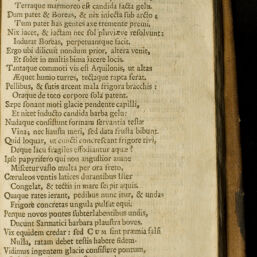 Terraque marmoreo est candida facta gelu.
Dum patet & Boreas, & nix injecta sub arcto;
Tum patet has gentes axe tremente premi.
Nix jacet, & jactam nec sol pluviæve resolvunt:
Indurat Boreas, perpetuamque facit.
Ergo ubi dilicuit nondum prior, altera venit,
Et solet in multis bima jacere locis.
Tantaque commoti vis est Aquilonis, ut altas
Æquet humo turres, tectaque rapta ferat.
Pellibus, & sutis arcent mala frigora bracchis:
Oraque de toto corpore sola patent.
Sæpe sonant moti glacie pendente capilli,
Et nitet inducto candida barba gelu:
Nudaque consistunt formam servantia testæ
Vina; nec hausta meri, sed data frusta bibunt.
Quid loquar, ut cuncti concrescant frigore rivi,
Deque lacu fragiles effodiantur aquæ?
Ipse papyrifero qui non angustior amne
Miscetur vasto multa per ora freto,
Cœruleos ventis latices durantibus Ister
Congelat, & tectis in mare serpit aquis.
Quaque rates ierant, pedibus nunc itur, & undas
Frigore concretas ungula pulsat equi.
Perque novos pontes subterlabentibus undis,
Ducunt Sarmatici barbara plaustra boves.
Vix equidem credar: sed cum sint præmia falsi
Nulla, ratam debet testis habere fidem.
Vidimus ingentem glacie consistere pontum,